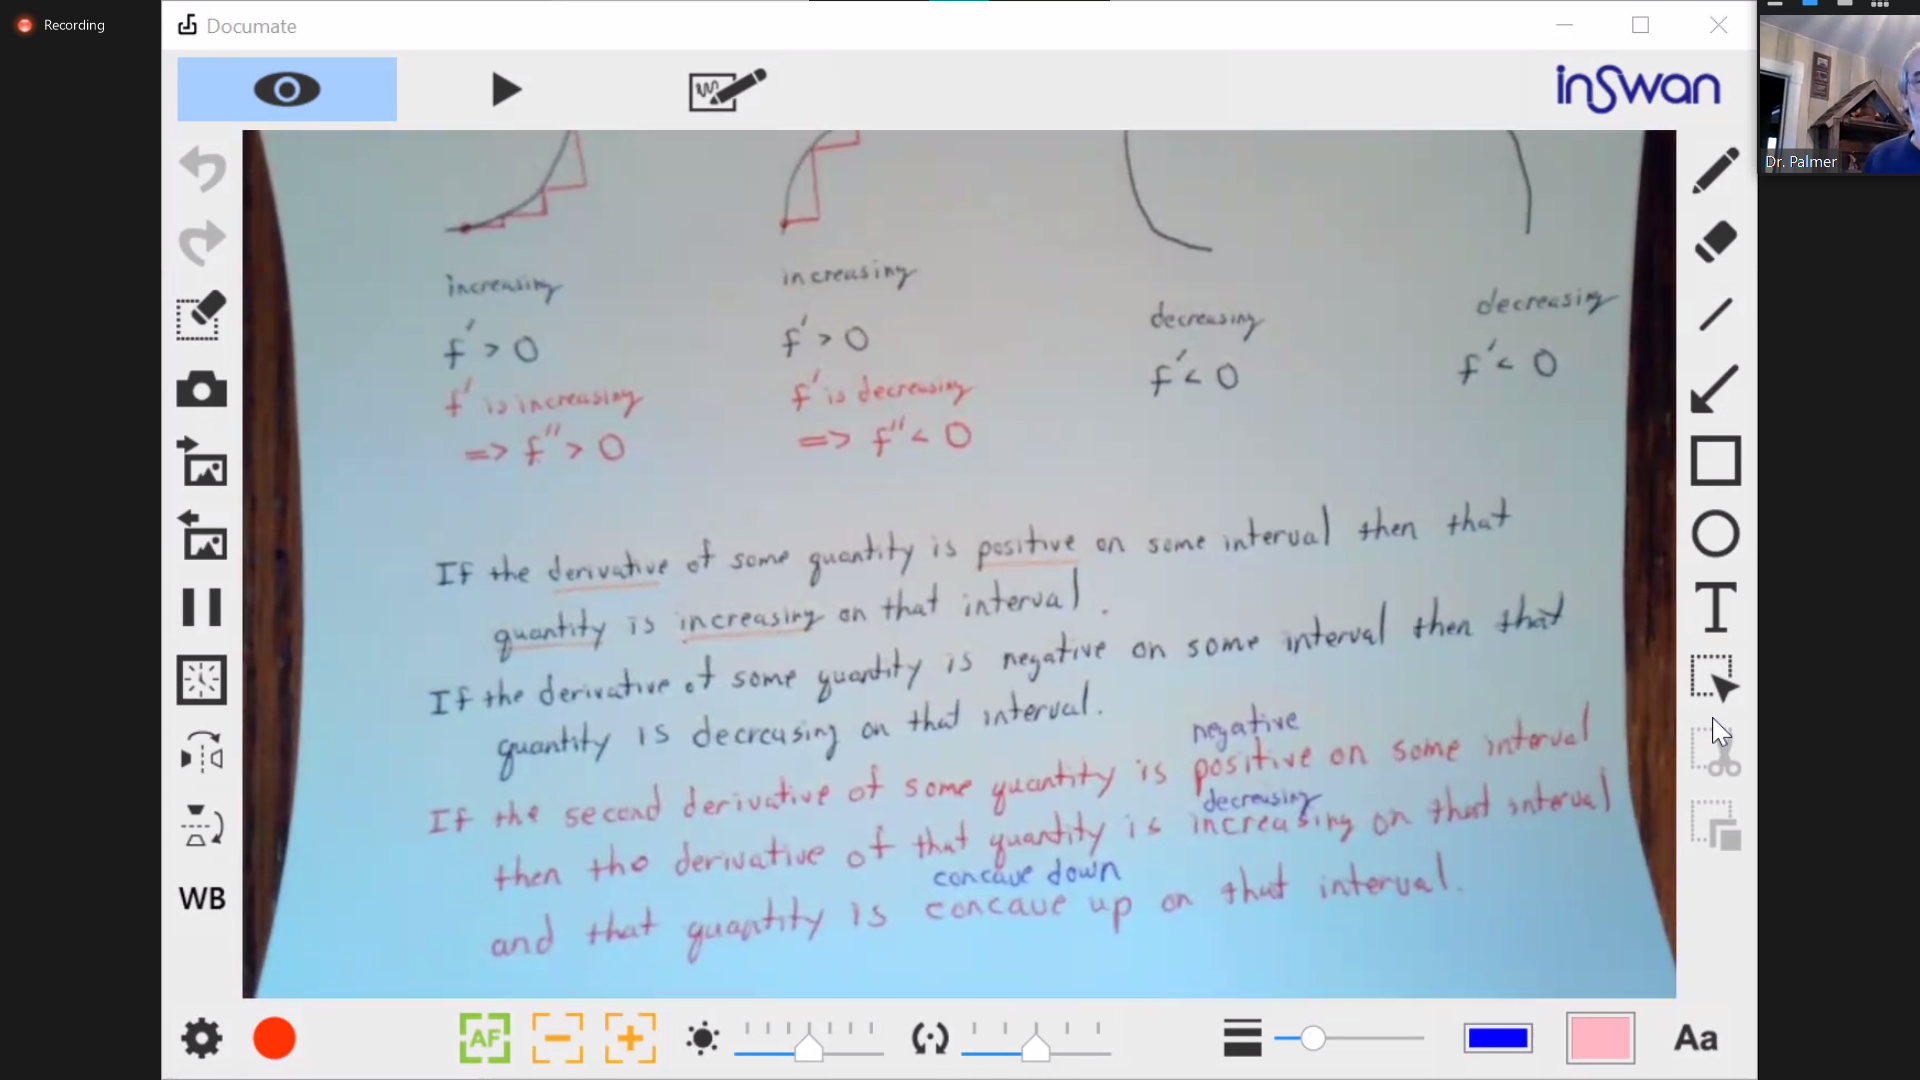 Recording
Documate
inSwan
Dr. Palmer
increasing increasing decreasing decreasing
f' > 0 f' > 0 f' < 0 f' < 0
f' is increasing f' is decreasing
=> f'' > 0 => f'' < 0
If the derivative of some quantity is positive on some interval then that
quantity is increasing on that interval.
If the derivative of some quantity is negative on some interval then that
quantity is decreasing on that interval.
negative
If the second derivative of some quantity is positive on some interval
decreasing
then the derivative of that quantity is increasing on that interval
concave down
and that quantity is concave up on that interval.
T
WB
AF
Aa